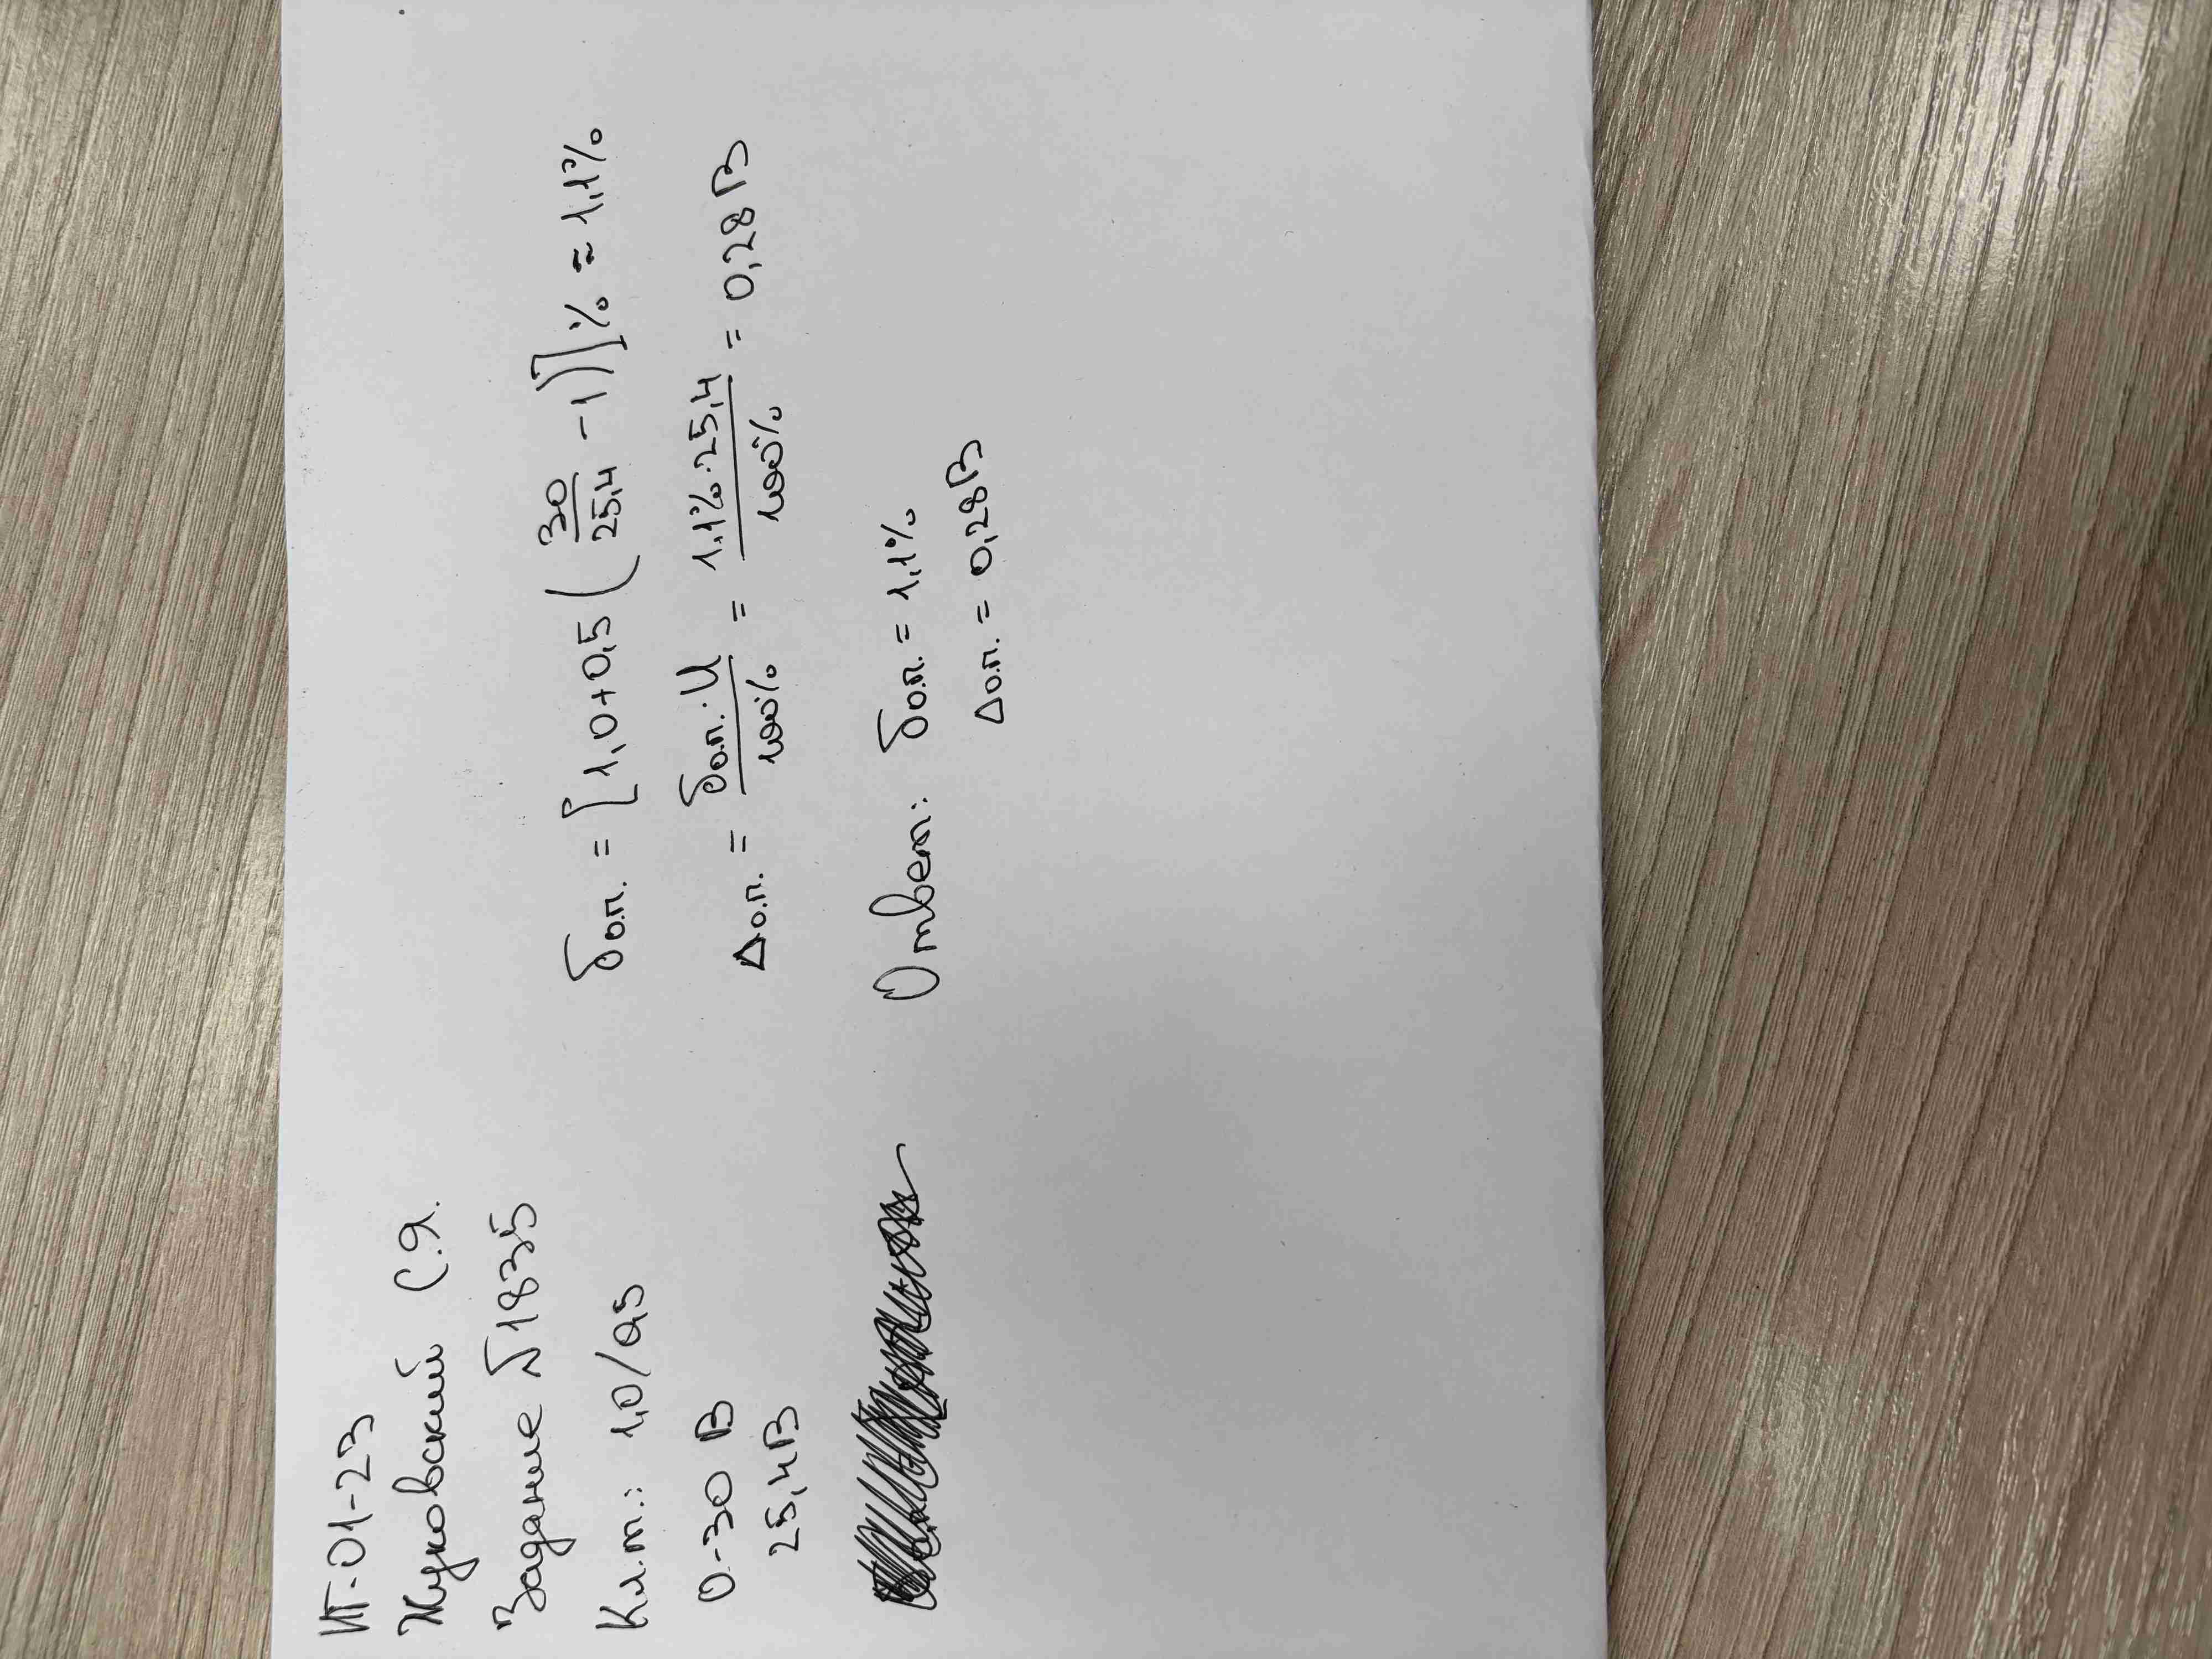 ИТ-01-23
Жуковский С.Я.
Задание №1835
Кл.т.: 1,0/0,5
0-30 В
25,4В
δо.п. = [1,0+0,5(30/25,4 -1)]% ≈ 1,1%
Δо.п. = δо.п.·U/100% = 1,1%·25,4/100% = 0,28В
Ответ: δо.п. = 1,1%
Δо.п. = 0,28В